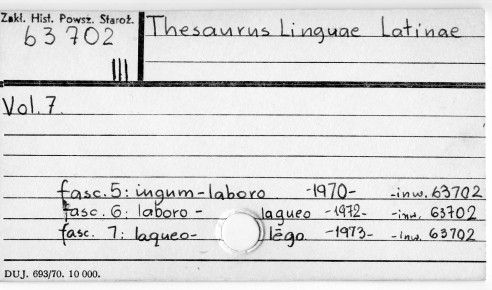 Zakł. Hist. Powsz. Staroż.
63702
III
Thesaurus Linguae Latinae
Vol. 7.
fasc. 5: iugum-laboro -1970- -inw. 63702
fasc. 6: laboro - laqueo -1972- -inw. 63702
fasc. 7: laqueo- lēgo -1973- -inw. 63702
DUJ. 693/70. 10 000.